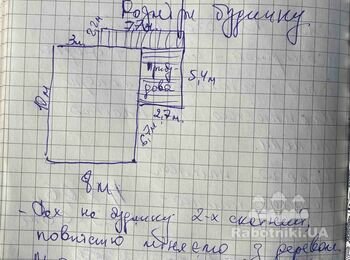 Розміри будинку
7,7м
2,2м
3м
Прибу-
дова
5,4м
10м
2,7м.
6,7м
8м
- Дах на будинку 2-х скатний
повністю міняємо з деревом.
Rabotniki.UA